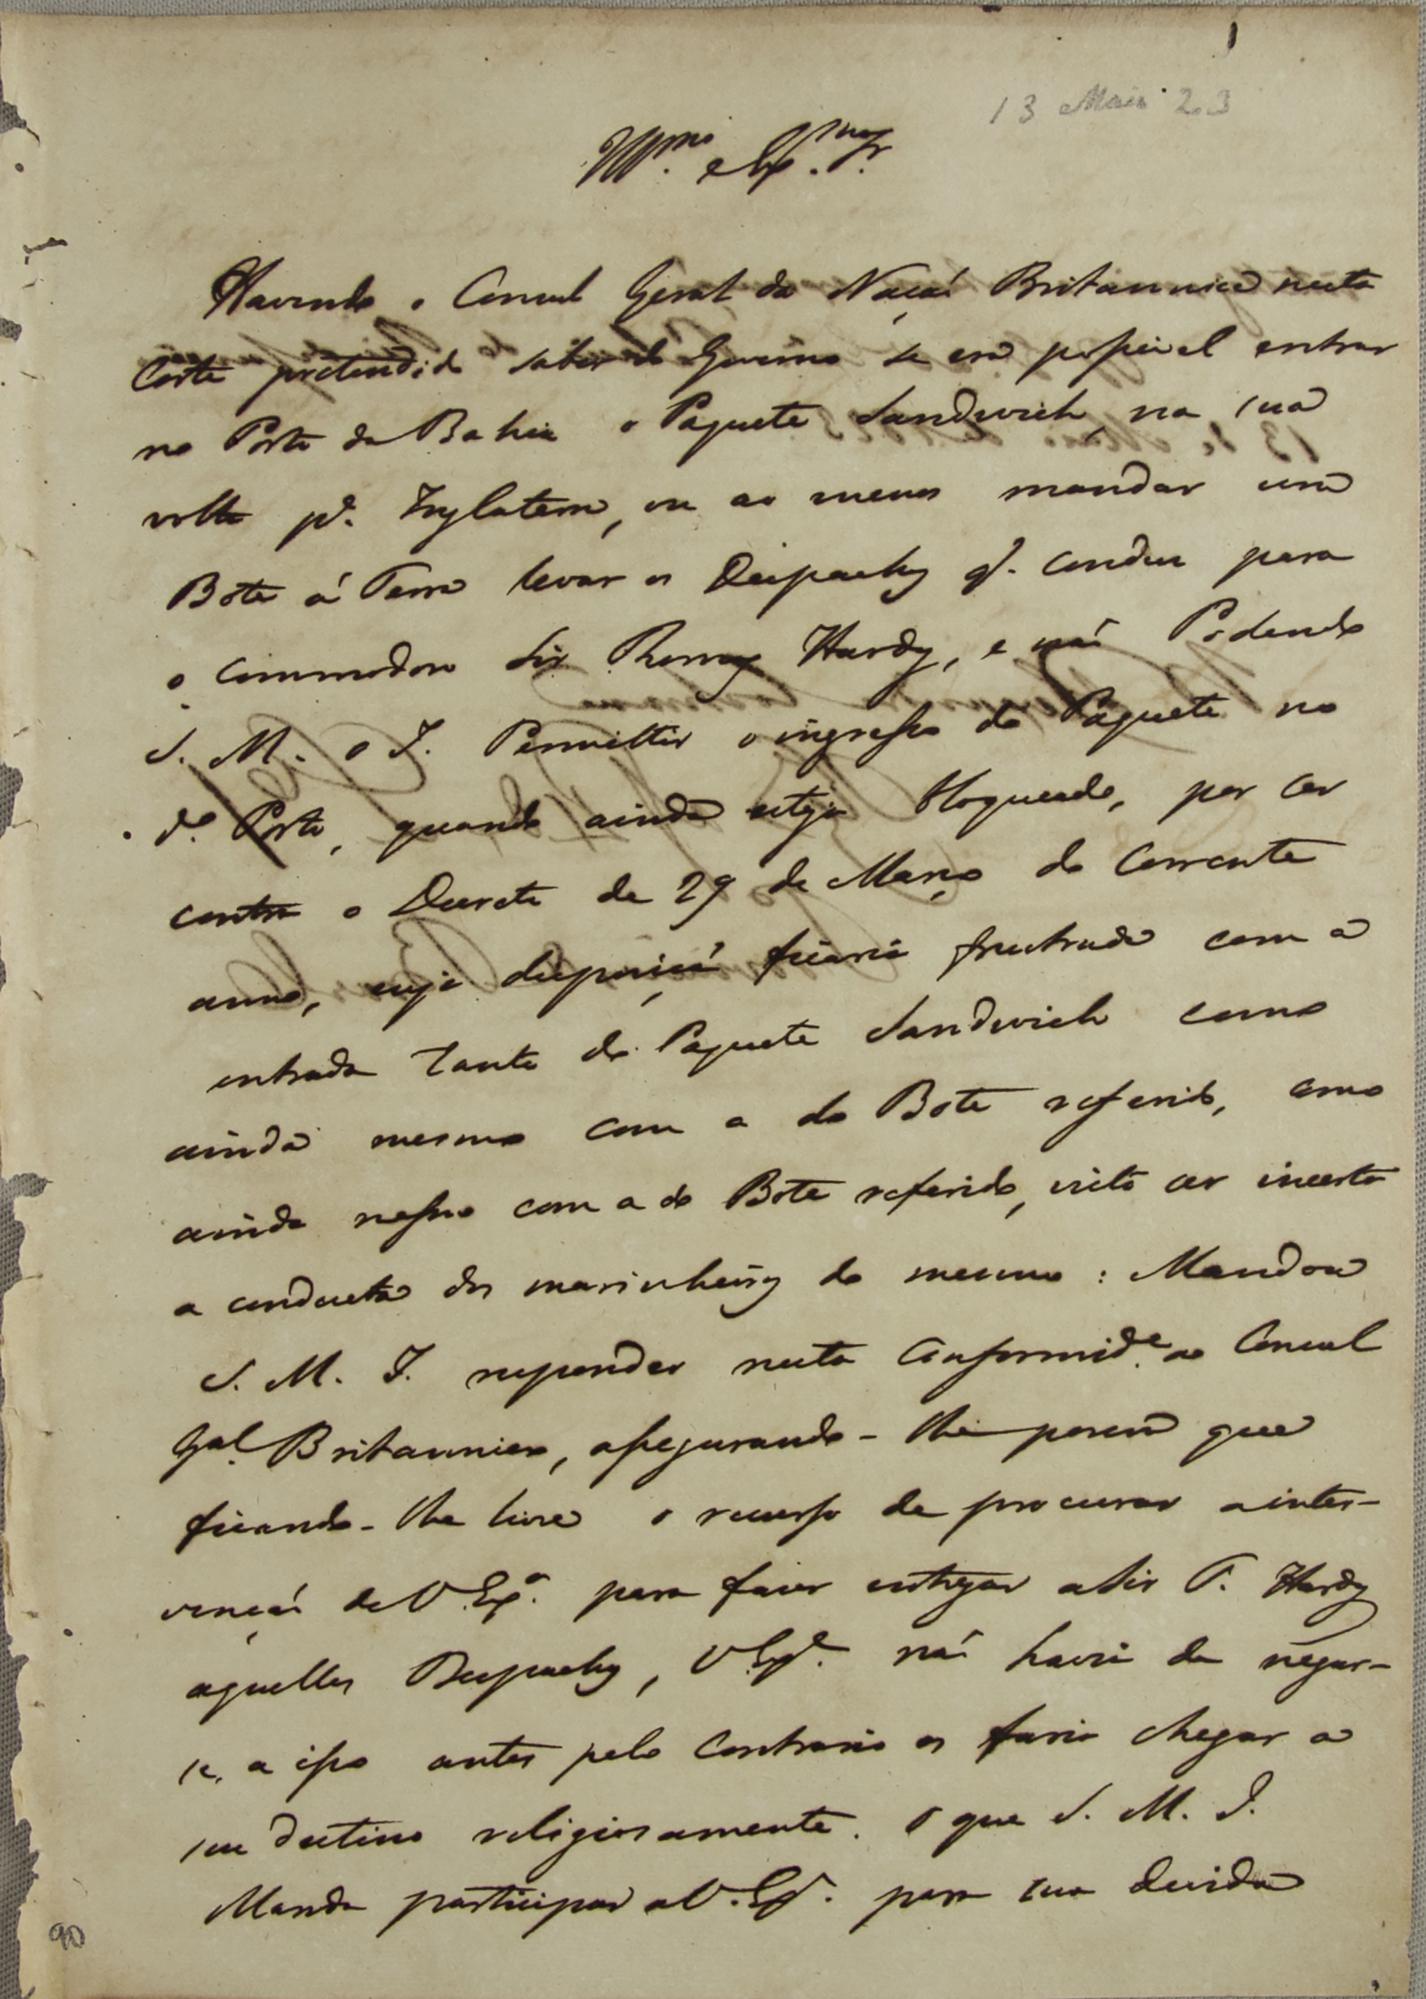 13 Maio 23
Illmo. e Ex.mo Sr.
Havendo o Consul Geral da Nação Britannica nesta
Corte pretendido saber do Governo se era possivel entrar
no Porto da Bahia o Paquete Sandwich, na sua
volta pa. Inglaterra, ou ao menos mandar um
Bote á Terra levar os Despachos q. conduz para
o Commodoro Sir Thomas Hardy, e não Podendo
S. M. o I. Permittir o ingresso do Paquete no
do. Porto, quando ainda esteja bloqueado, por ser
contra o Decreto de 29 de Março do Corrente
anno, cuja disposição ficaria frustrada com a
entrada tanto do Paquete Sandwich como
ainda mesmo com a do Bote referido, como
ainda mesmo com a do Bote referido, visto ser incerta
a conducta dos marinheiros do mesmo: Mandou
S. M. I. responder nesta conformide. ao Consul
Gal. Britannico, assegurando-lhe porem que
ficando-lhe livre o recurso de procurar a inter-
venção de V. Exa. para fazer entregar a Sir T. Hardy
aquelles Despachos, V. Exa. não havia de negar-
se a isso antes pelo Contrario os faria chegar a
seu destino religiosamente. O que S. M. I.
Manda participar a V. Exa. para sua devida
90